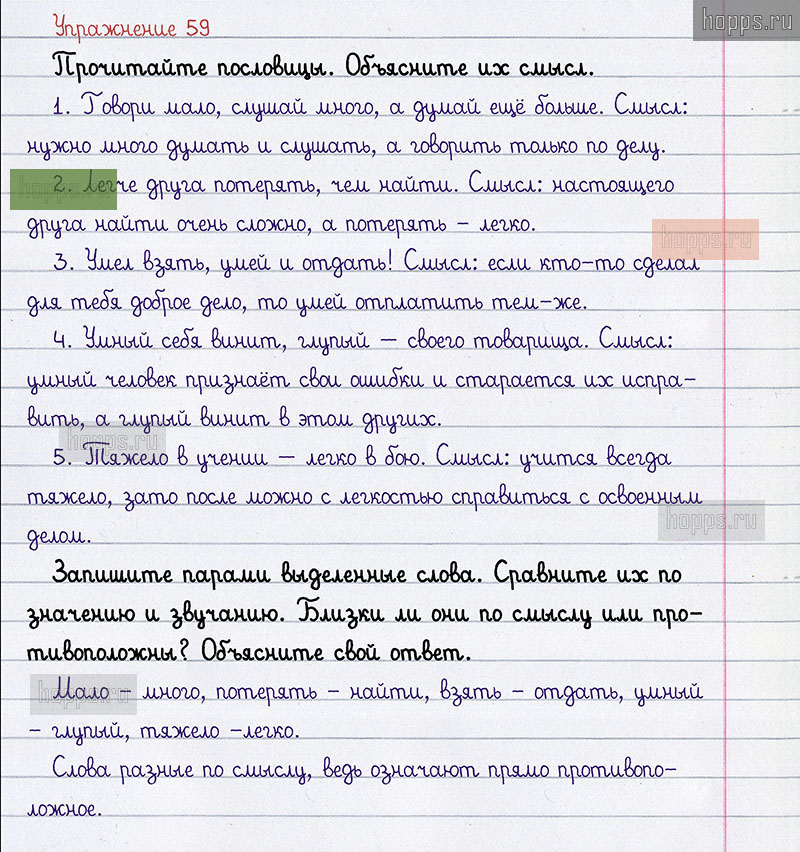 Упражнение 59
hopps.ru
Прочитайте пословицы. Объясните их смысл.
1. Говори мало, слушай много, а думай ещё больше. Смысл:
нужно много думать и слушать, а говорить только по делу.
hopps.ru
2. Легче друга потерять, чем найти. Смысл: настоящего
друга найти очень сложно, а потерять – легко.
hopps.ru
3. Умел взять, умей и отдать! Смысл: если кто-то сделал
для тебя доброе дело, то умей отплатить тем-же.
4. Умный себя винит, глупый – своего товарища. Смысл:
умный человек признаёт свои ошибки и старается их испра-
вить, а глупый винит в этом других.
hopps.ru
5. Тяжело в учении – легко в бою. Смысл: учится всегда
тяжело, зато после можно с легкостью справиться с освоенным
hopps.ru
делом.
Запишите парами выделенные слова. Сравните их по
значению и звучанию. Близки ли они по смыслу или про-
тивоположны? Объясните свой ответ.
hopps.ru
Мало – много, потерять – найти, взять – отдать, умный
– глупый, тяжело –легко.
Слова разные по смыслу, ведь означают прямо противопо-
ложное.